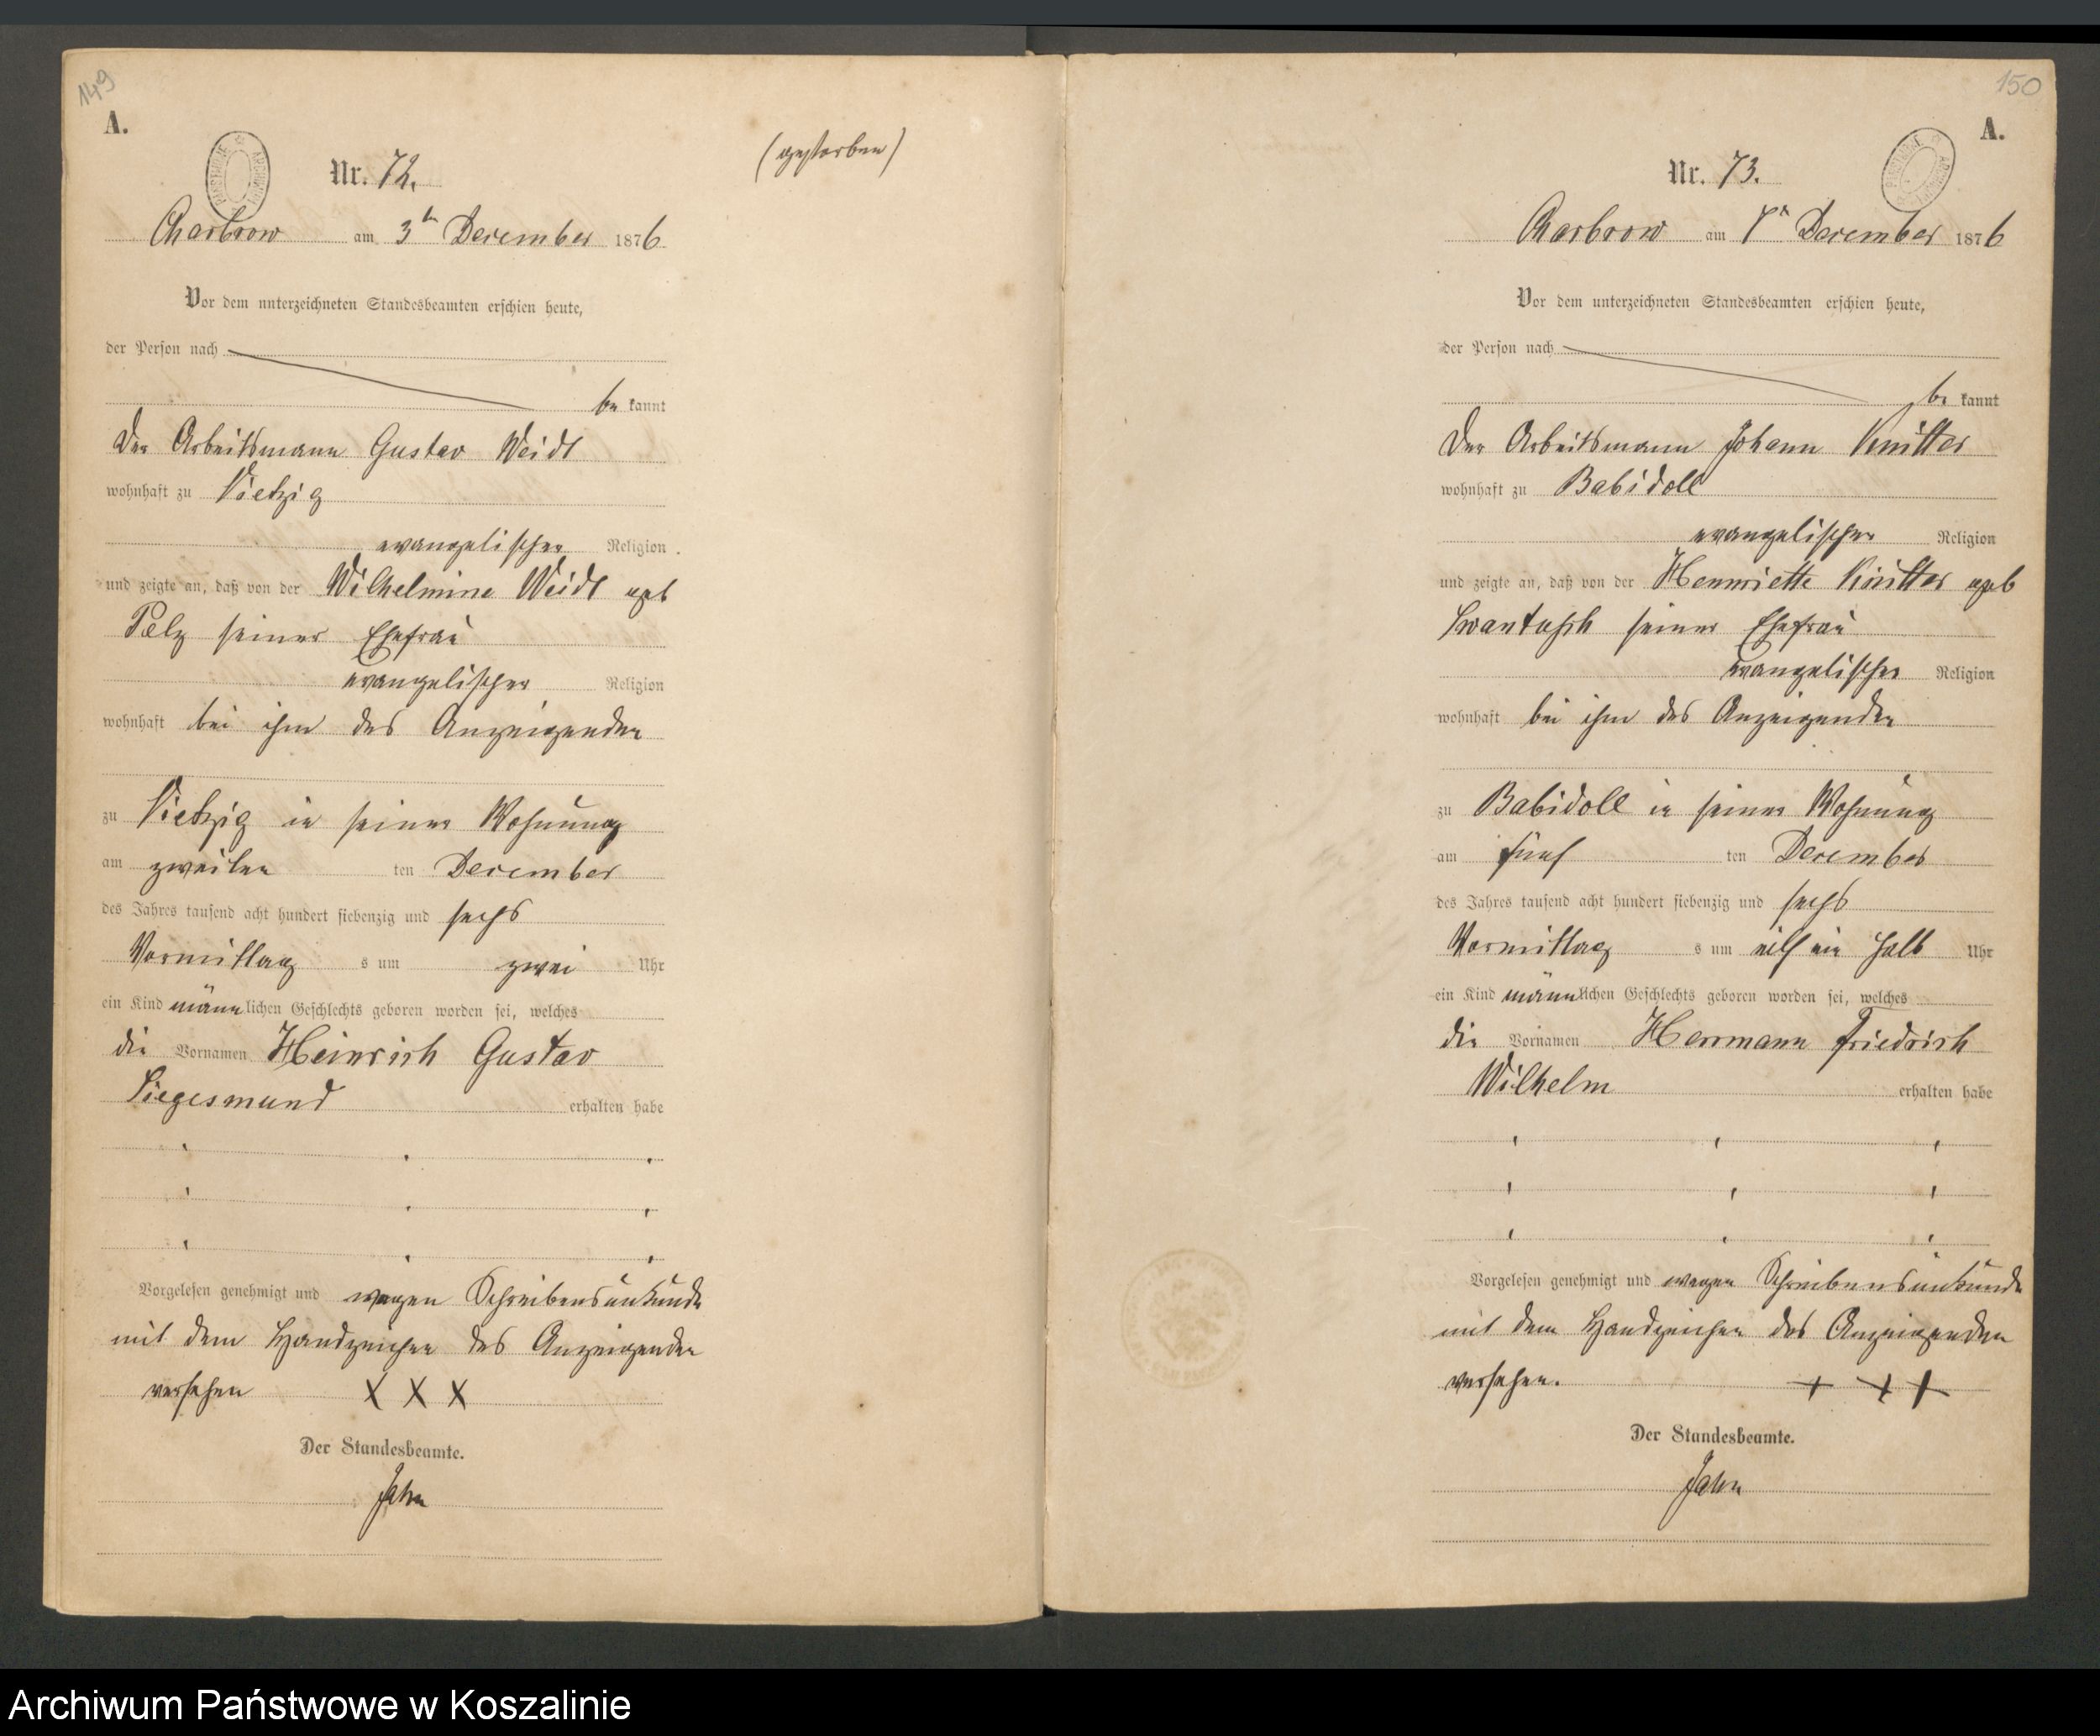 149
A.
Nr. 72.
(gestorben)
Charbrow am 3ten December 1876
Vor dem unterzeichneten Standesbeamten erschien heute,
der Person nach
be kannt
Der Arbeitsmann Gustav Weidt
wohnhaft zu Vietzig
evangelischer Religion
und zeigte an, daß von der Wilhelmine Weidt geb
Pelz seiner Ehefrau
evangelischer Religion
wohnhaft bei ihm des Anzeigenden
zu Vietzig in seiner Wohnung
am zweiten ten December
des Jahres tausend acht hundert siebenzig und sechs
Vormittag s um zwei Uhr
ein Kind männlichen Geschlechts geboren worden sei, welches
die Vornamen Heinrich Gustav
Siegesmund erhalten habe
Vorgelesen genehmigt und wegen Schreibensunkunde
mit dem Handzeichen des Anzeigenden
versehen X X X
Der Standesbeamte.
Jahn
150
A.
Nr. 73.
Charbrow am December 1876
Vor dem unterzeichneten Standesbeamten erschien heute,
der Person nach
be kannt
Der Arbeitsmann Johann Knitter
wohnhaft zu Babidoll
evangelischer Religion
und zeigte an, daß von der Hennriette Knitter geb
seiner Ehefrau
evangelischer Religion
wohnhaft bei ihm des Anzeigenden
zu Babidoll in seiner Wohnung
am fünf ten December
des Jahres tausend acht hundert siebenzig und sechs
Vormittag s um elf ein halb Uhr
ein Kind männlichen Geschlechts geboren worden sei, welches
die Vornamen Herrmann Friedrich
Wilhelm erhalten habe
Vorgelesen genehmigt und wegen Schreibensunkunde
mit dem Handzeichen des Anzeigenden
versehen. + + +
Der Standesbeamte.
Jahn
Archiwum Państwowe w Koszalinie